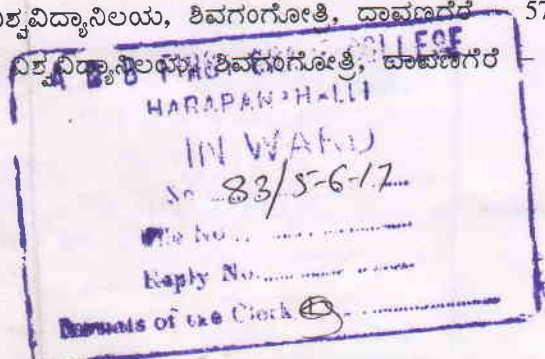 ವಿಶ್ವವಿದ್ಯಾನಿಲಯ, ಶಿವಗಂಗೋತ್ರಿ, ದಾವಣಗೆರೆ – 57
ವಿಶ್ವವಿದ್ಯಾನಿಲಯ, ಶಿವಗಂಗೋತ್ರಿ, ದಾವಣಗೆರೆ –
COLLEGE
HARAPANAHALLI
IN WARD
No 83/5-6-17
File No
Reply No
of the Clerk